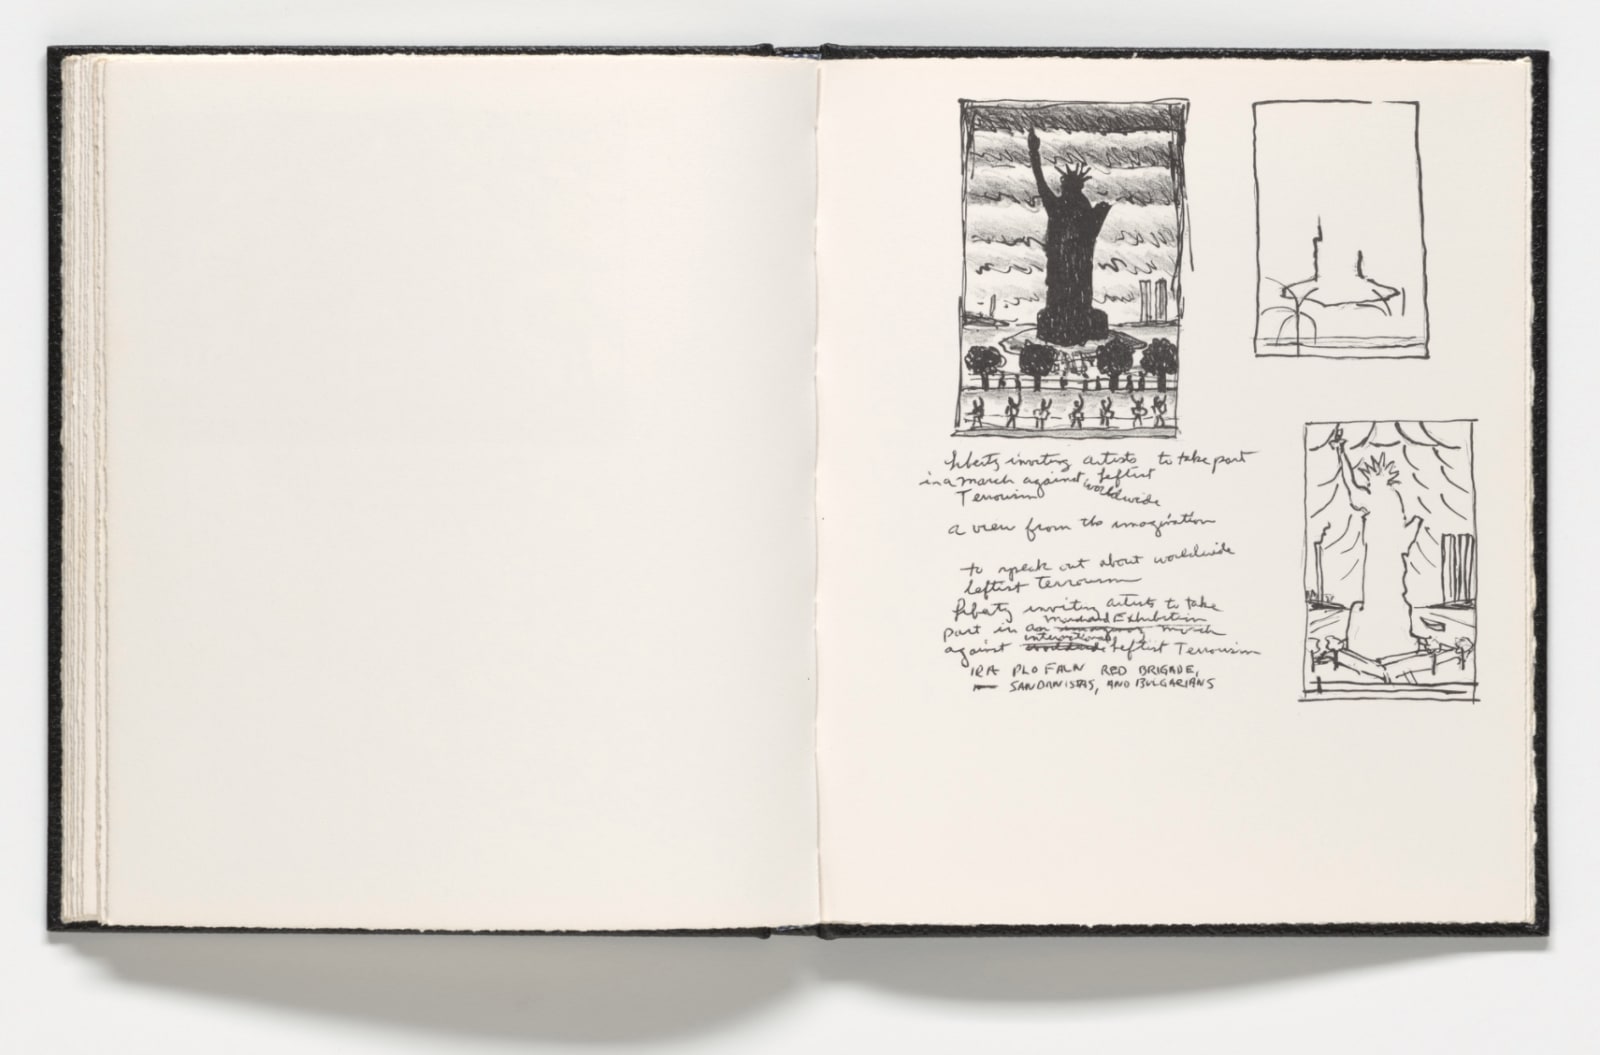 Liberty inviting artists to take part
in a march against Leftist
Terrorism worldwide
a view from the imagination
to speak out about worldwide
leftist terrorism
Liberty inviting artists to take
part in an imaginary march
against international Leftist Terrorism
IRA PLO FALN RED BRIGADE,
SANDANISTAS, AND BULGARIANS